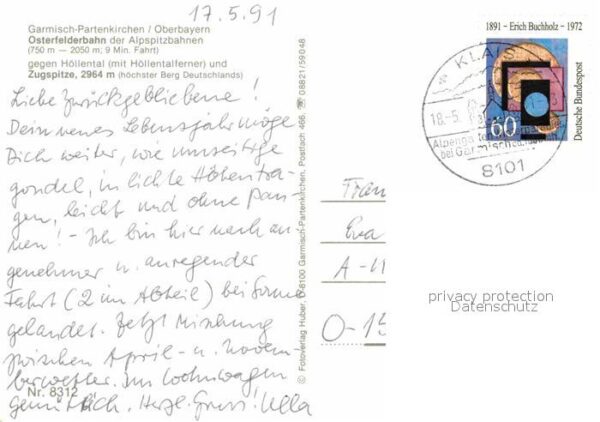 17.5.91
Garmisch-Partenkirchen / Oberbayern
Osterfelderbahn der Alpspitzbahnen
(750 m — 2050 m; 9 Min. Fahrt)
gegen Höllental (mit Höllentalferner) und
Zugspitze, 2964 m (höchster Berg Deutschlands)
Liebe Zurückgebliebene!
Dein neues Lebensjahr möge
Dich weiter, wie umseitige
gondel, in lichte Höhen tra-
gen, leicht und ohne Pan-
nen! - Ich bin hier nach an-
genehmer u. anregender
Fahrt (2 im Abteil) bei Sonne
gelandet. Jetzt Mischung
zwischen April- u. Novem-
berwetter. Im Wohnwagen
gemütlich. Herzl. Gruss! Ulla
Nr. 8312
© Fotoverlag Huber, D-8100 Garmisch-Partenkirchen, Postfach 466, ☎ 08821/59048
1891 - Erich Buchholz - 1972
Deutsche Bundespost
60
KLAIS
18.-5.
bei Garmisch
8101
Fran
Eva
A-
O-15
privacy protection
Datenschutz